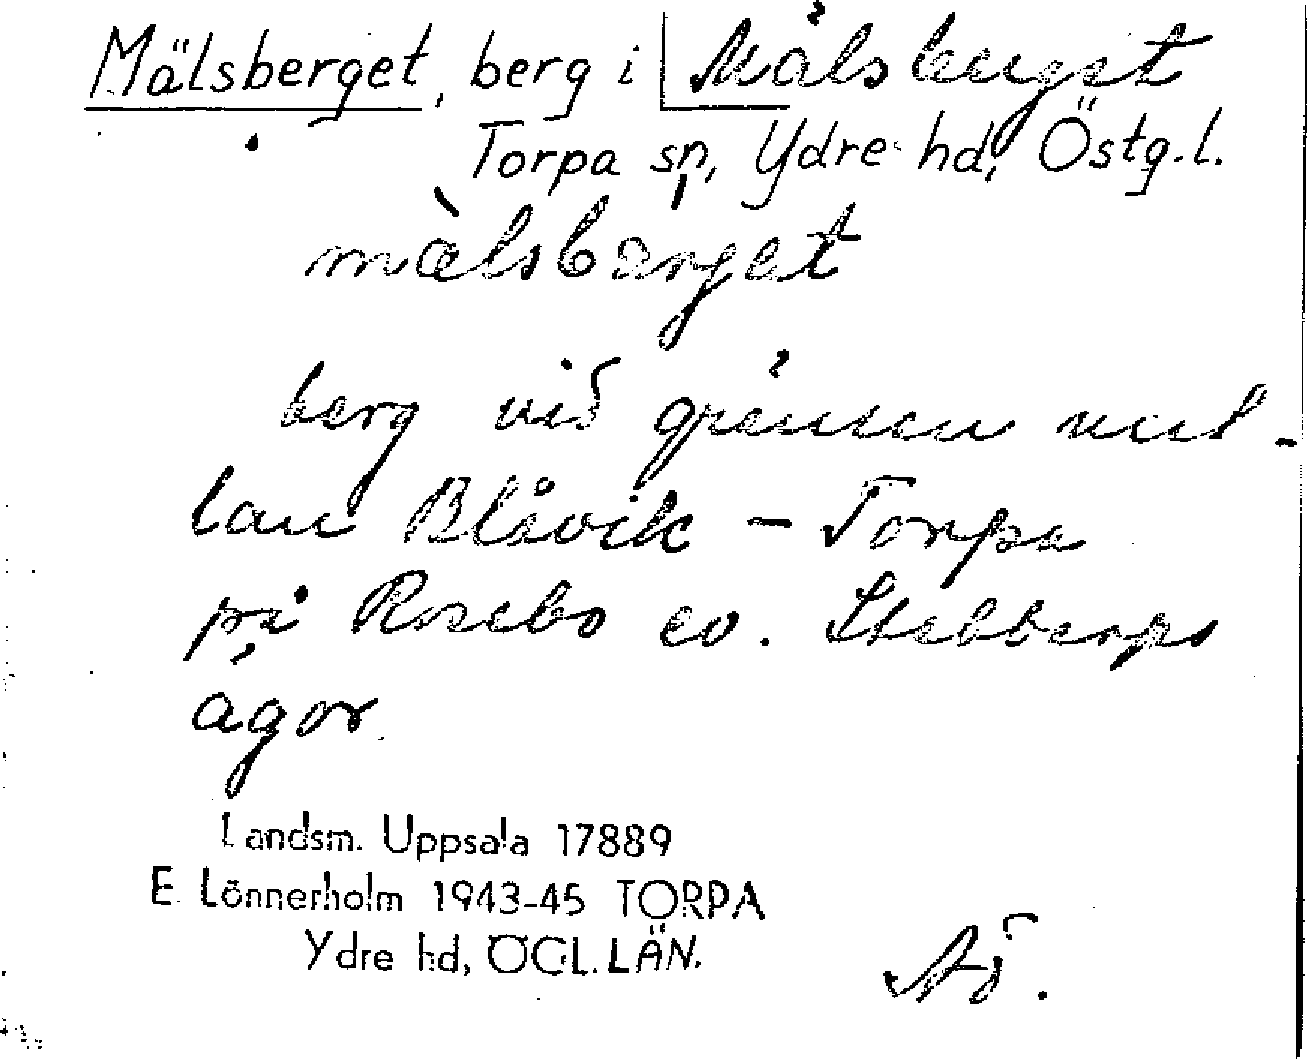 Mälsberget, berg i Mälsberget
Torpa sn, Ydre hd, Östg.l.
mälsbärget
berg vid gränsen mel-
lan Blåvik - Torpa
på Rosebo ev. Stabbarps
ägor.
Landsm. Uppsala 17889
E. Lönnerholm 1943-45 TORPA
Ydre hd, ÖGL. LÄN.